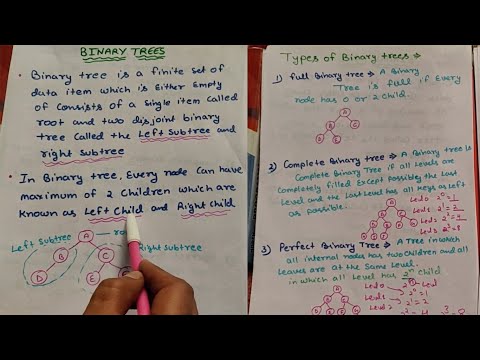 BINARY TREES
Binary tree is a finite set of
data item which is Either Empty
of Consists of a Single item Called
root and two disjoint binary
tree Called the Left Subtree and
right Subtree
In Binary tree, Every node Can have
maximum of 2 Children which are
known as Left Child and Right Child
Left Subtree
A
roo
Right Subtree
B
C
D
E
Types of Binary trees
1) Full Binary tree → A Binary
Tree is full if Every
node has 0 or 2 Child.
A
B
C
D
E
2) Complete Binary Tree → A Binary tree is
Complete Binary Tree if all Levels are
Completely filled Except Possibley the Last
Level and the Last Level has all keys as left
as possible.
3) Perfect Binary Tree → A Tree in which
all internal nodes has two Children and all
Leaves are at the Same Level.
in which all Level has 2ⁿ Child